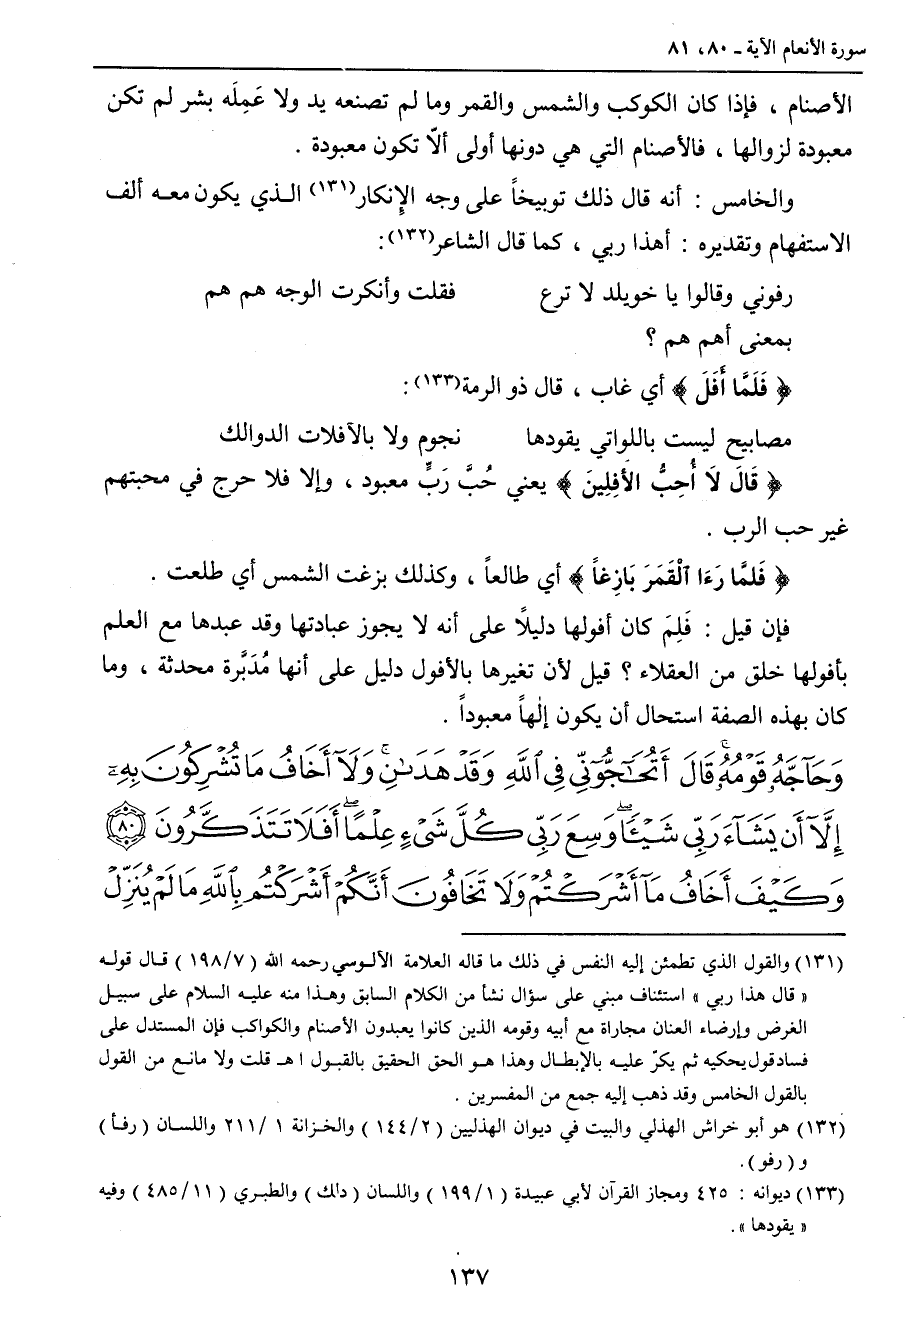 سورة الأنعام الآية ـ ٨٠، ٨١
الأصنام ، فإذا كان الكوكب والشمس والقمر وما لم تصنعه يد ولا عَمِلَه بشر لم تكن
معبودة لزوالها ، فالأصنام التي هي دونها أولى ألاّ تكون معبودة .
والخامس : أنه قال ذلك توبيخاً على وجه الإنكار(١٣١) الذي يكون معه ألف
الاستفهام وتقديره : أهذا ربي ، كما قال الشاعر(١٣٢):
رفوني وقالوا يا خويلد لا ترع فقلت وأنكرت الوجه هم هم
بمعنى أهم هم ؟
﴿ فَلَمَّا أَفَلَ ﴾ أي غاب ، قال ذو الرمة(١٣٣) :
مصابيح ليست باللواتي يقودها نجوم ولا بالآفلات الدوالك
﴿ قَالَ لَا أُحِبُّ الأَفِلِينَ ﴾ يعني حُبَّ رَبٍّ معبود ، وإلا فلا حرج في محبتهم
غير حب الرب .
﴿ فَلمَّا رَءَا ٱلْقَمَرَ بَازِغاً ﴾ أي طالعاً ، وكذلك بزغت الشمس أي طلعت .
فإن قيل : فَلِمَ كان أفولها دليلًا على أنه لا يجوز عبادتها وقد عبدها مع العلم
بأفولها خلق من العقلاء ؟ قيل لأن تغيرها بالأفول دليل على أنها مُدَبَّرة محدثة ، وما
كان بهذه الصفة استحال أن يكون إلٰهاً معبوداً .
وَحَآجَّهُۥ قَوْمُهُۥۚ قَالَ أَتُحَٰٓجُّوٓنِّي فِي ٱللَّهِ وَقَدْ هَدَىٰنِۚ وَلَآ أَخَافُ مَا تُشْرِكُونَ بِهِۦٓ
إِلَّآ أَن يَشَآءَ رَبِّي شَيْـًٔاۗ وَسِعَ رَبِّي كُلَّ شَيْءٍ عِلْمًاۗ أَفَلَا تَتَذَكَّرُونَ ٨٠
وَكَيْفَ أَخَافُ مَآ أَشْرَكْتُمْ وَلَا تَخَافُونَ أَنَّكُمْ أَشْرَكْتُم بِٱللَّهِ مَا لَمْ يُنَزِّلْ
(١٣١) والقول الذي تطمئن إليه النفس في ذلك ما قاله العلامة الألوسي رحمه الله ( ١٩٨/٧ ) قال قوله
« قال هذا ربي » استئناف مبني على سؤال نشأ من الكلام السابق وهذا منه عليه السلام على سبيل
الغرض وإرضاء العنان مجاراة مع أبيه وقومه الذين كانوا يعبدون الأصنام والكواكب فإن المستدل على
فساد قول يحكيه ثم يكرّ عليه بالإبطال وهذا هو الحق الحقيق بالقبول ا هـ قلت ولا مانع من القول
بالقول الخامس وقد ذهب إليه جمع من المفسرين .
(١٣٢) هو أبو خراش الهذلي والبيت في ديوان الهذليين ( ١٤٤/٢ ) والخزانة ٢١١/١ واللسان ( رفأ )
و ( رفو ).
(١٣٣) ديوانه : ٤٢٥ ومجاز القرآن لأبي عبيدة ( ١٩٩/١ ) واللسان ( دلك ) والطبري ( ٤٨٥/١١ ) وفيه
« يقودها ».
١٣٧